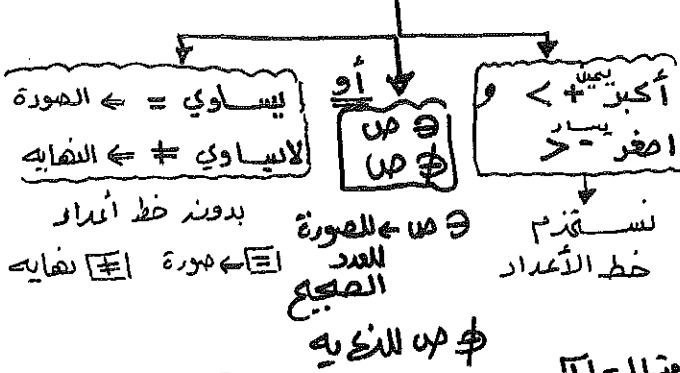 أكبر يمين + > و
اصغر يسار - <
نستخدم
خط الأعداد
أو
∋ ص
∌ ص
∋ ص ← للصورة
للعدد
الصحيح
∌ ص للنهاية
يساوي = ← الصورة
لايساوي ≠ ← النهايه
بدون خط أعداد
= ← صورة ≠ نهايه